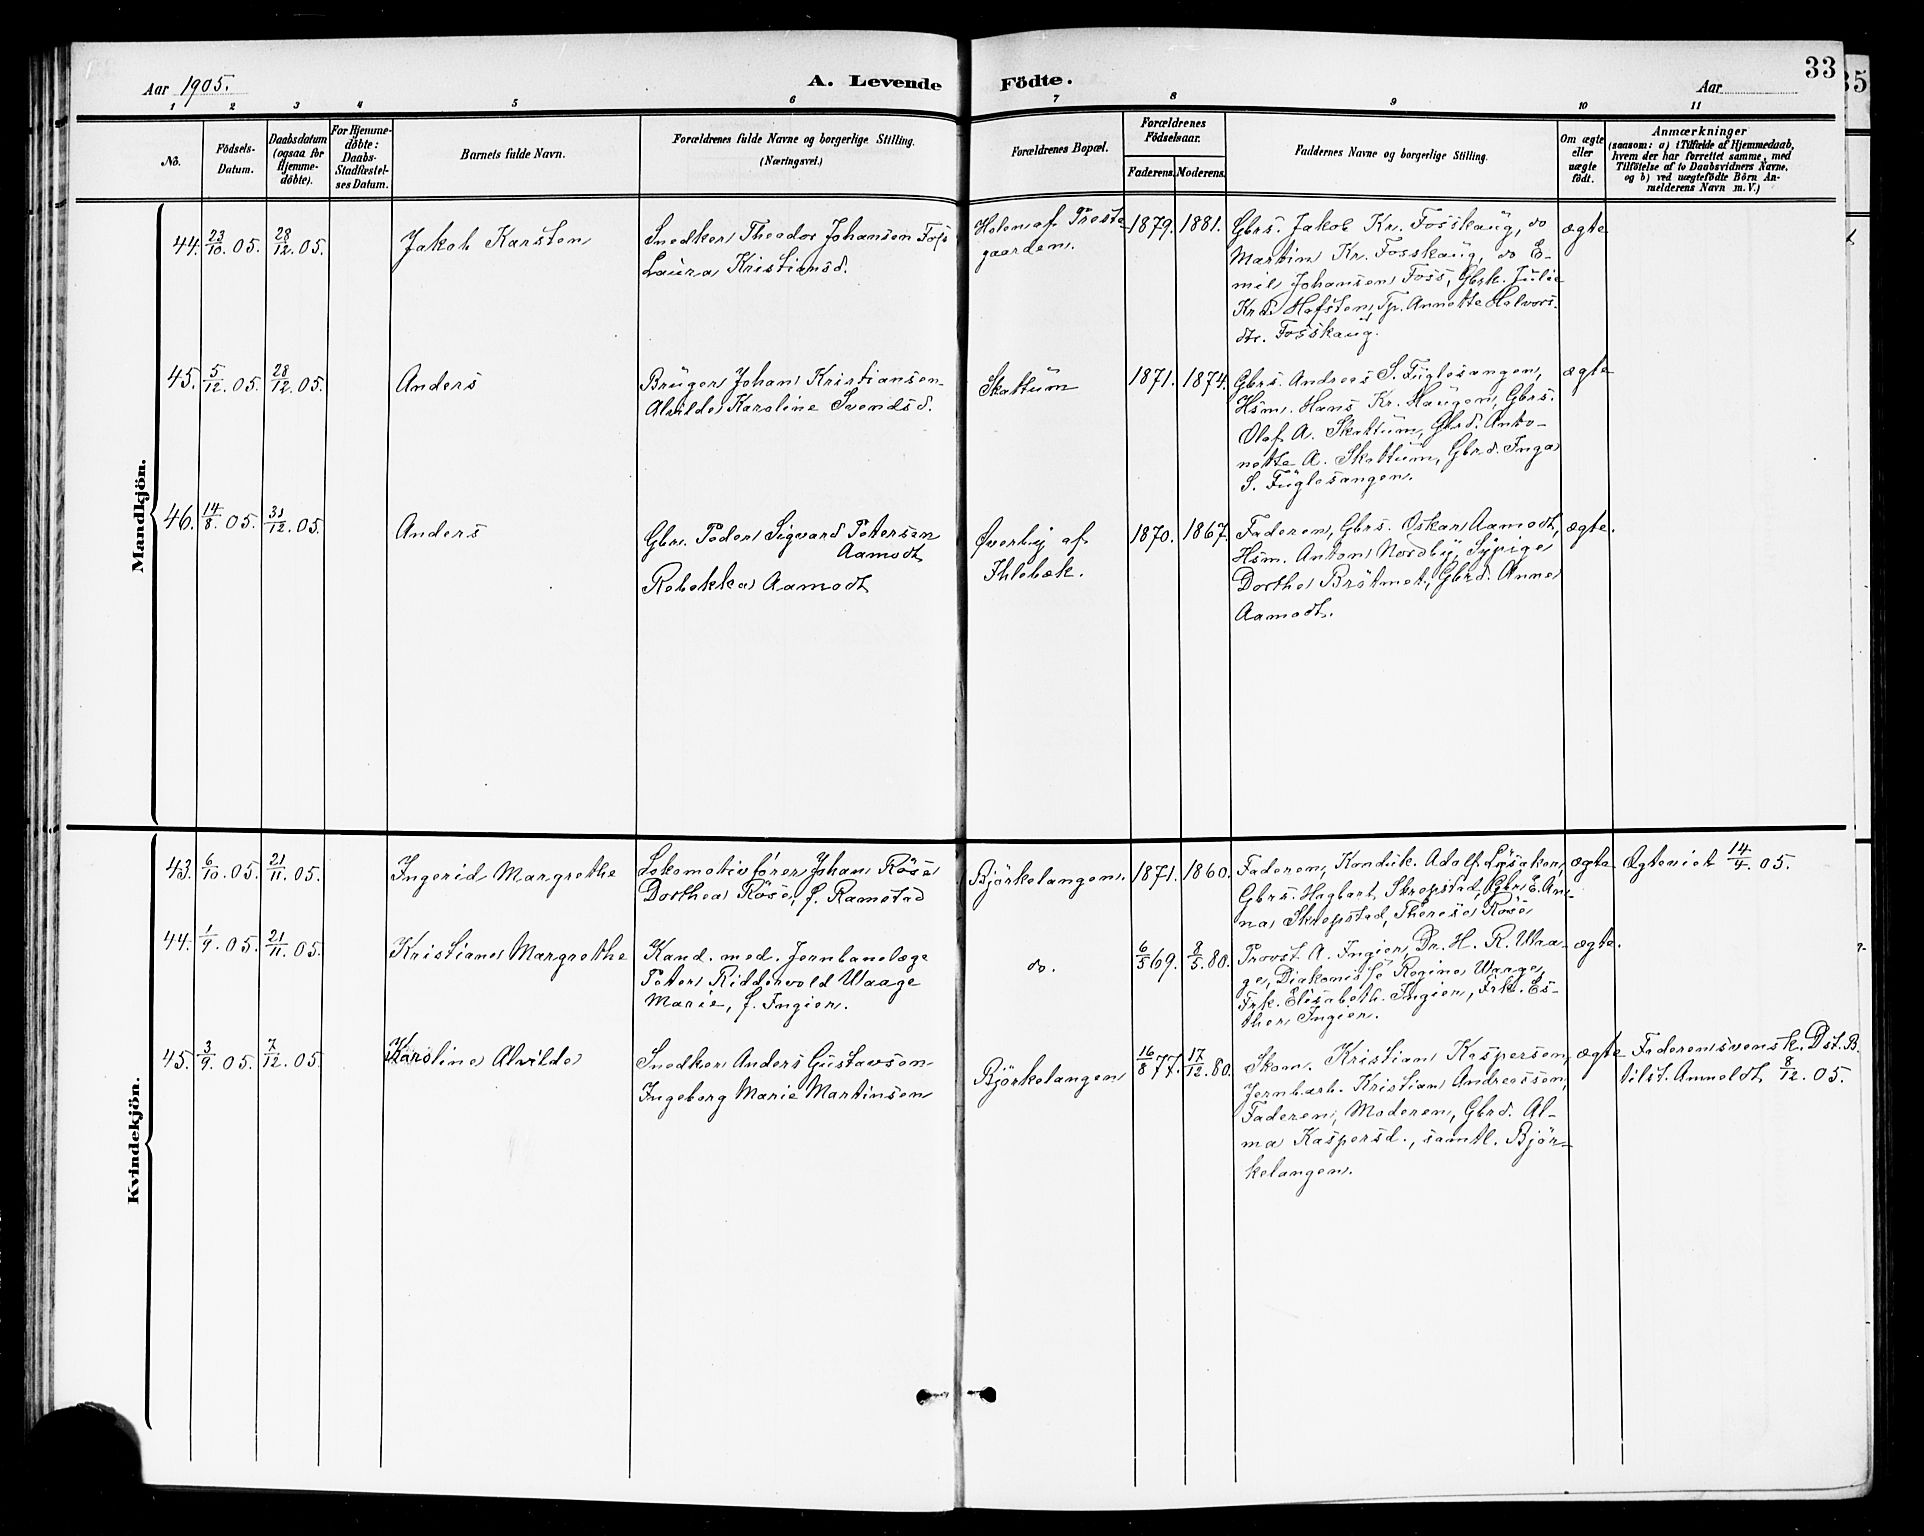 Aar 1905.
A. Levende
Födte.
Aar
33
35
1 2 3 4 5 6 7 8 9 10 11
No.
Födsels-
Datum.
Daabsdatum
(ogsaa for
Hjemme-
döbte).
For Hjemme-
döbte:
Daabs-
Stadfæstel-
ses Datum.
Barnets fulde Navn.
Forældrenes fulde Navne og borgerlige Stilling.
(Næringsvei.)
Forældrenes Bopæl.
Forældrenes
Födselsaar.
Faderens. Moderens.
Faddernes Navne og borgerlige Stilling.
Om ægte
eller
uægte
födt.
Anmærkninger
(saasom: a) i Tilfælde af Hjemmedaab,
hvem der har forrettet samme, med
Tilföielse af to Daabsvidners Navne.
og b) ved uægtefödte Börn An-
melderens Navn m. V.)
Mandkjön.
44. 23/10 05. 28/12 05.
Jakob Karsten
Snedker Theodor Johansen Foss
Laura Kristiansd.
Holen af Preste
gaarden.
1879. 1881.
Gbrs. Jakob Kr. Fosskaug, do
Martin Kr. Fosskaug, do E-
mil Johansen Foss, Gbrk. Julie
Kr.d. Hofsten, Tp. Annette Halvors-
dtr. Fosskaug.
ægte
45. 5/12 05. 28/12 05.
Anders
Bruger Johan Kristiansen
Alvilde Karoline Svendsd.
Skattum
1871. 1874.
Gbrs. Andreas S. Fuglesangen,
Hsm. Hans Kr. Haugen, Gbrs.
Olaf A. Skattum, Gbrd. Anto-
nette A. Skattum, Gbrd. Inga
S. Fuglesangen.
ægte
46. 14/8 05. 31/12 05.
Anders
Gbr. Peder Sigvard Petersen
Aamodt
Rebekka Aamodt
Øverby af
Ihlebæk.
1870. 1867.
Faderen, Gbrs. Oskar Aamodt,
Hsm. Anton Nordby, Sypige
Dorthe Brötmet, Gbrd. Anne
Aamodt.
ægte.
Kvindekjön.
43. 6/10 05. 21/11 05.
Ingerid Margrethe
Lokomotivförer Johan Röse
Dorthea Röse, f. Ramstad
Björkelangen.
1871. 1860.
Faderen, Konduk. Adolf Lysaker,
Gbrs. Hagbart Skrepstad, Gbr. E. An-
na Skrepstad, Therese Röse
ægte
Ægteviet 14/4 05.
44. 1/9 05. 21/11 05.
Kristiane Margrethe
Kand. med. Jernbanelæge
Peter Riddervold Waage
Marie, f. Ingier.
do.
6/5 69. 8/5 80.
Provst A. Ingier, Dr. H. R. Waa-
ge, Diakonisse Regine Waage,
Frk. Elisabeth Ingier, Frk. Es-
ther Ingier.
ægte.
45. 3/9 05. 7/12 05.
Karoline Alvilde
Snedker Anders Gustavsen
Ingeborg Marie Martinsen
Björkelangen
16/8 77. 17/12 80.
Skom. Kristian Kaspersen,
Jernbarb. Kristian Andreassen,
Faderen, Moderen, Gbrd. Al-
ma Kaspersd., samtl. Björ-
kelangen.
ægte
Faderen svensk. Dst. B.
tilst. Anmeldt 8/12. 05.